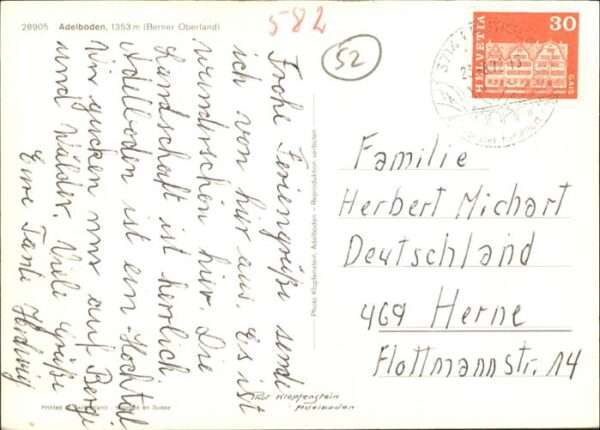 28905 Adelboden, 1353 m (Berner Oberland)
582
52
HELVETIA
30
GAIS
Frohe Feriengrüße sende
ich von hier aus. Es ist
wunderschön hier. Die
Landschaft ist herrlich
Adelboden ist ein Hochtal
Wir gucken nur auf Berge
und Wälder. Viele Grüße
Eure Tante Hedwig
Photo Klopfenstein, Adelboden - Reproduktion verboten
Familie
Herbert Michart
Deutschland
469 Herne
Flottmannstr. 14
Phot Klopfenstein
Adelboden
Printed in Switzerland en Suisse